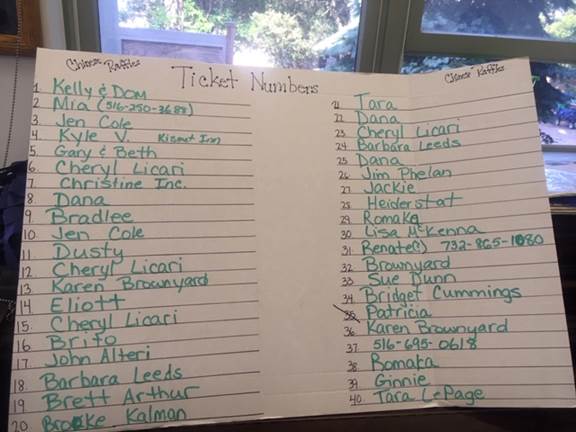 Chinese Raffles
Ticket Numbers
Chinese Raffles
1 Kelly & Dom
2 Mia (516-250-3688)
3. Jen Cole
4. Kyle V. Kismet Inn
5. Gary & Beth
6. Cheryl Licari
7. Christine Inc.
8. Dana
9. Bradlee
10. Jen Cole
11 Dusty
12 Cheryl Licari
13 Karen Brownyard
14 Eliott
15. Cheryl Licari
16 Brito
17 John Alteri
18. Barbara Leeds
19. Brett Arthur
20. Brooke Kalman
21 Tara
22 Dana
23 Cheryl Licari
24 Barbara Leeds
25 Dana
26 Jim Phelan
27 Jackie
28 Heiderstat
29. Romaka
30 Lisa McKenna
31. Renate() 732-865-1080
32 Brownyard
33. Sue Dunn
34 Bridget Cummings
35 Patricia
36. Karen Brownyard
37. 516-695-0618
38. Romaka
39. Ginnie
40. Tara LePage